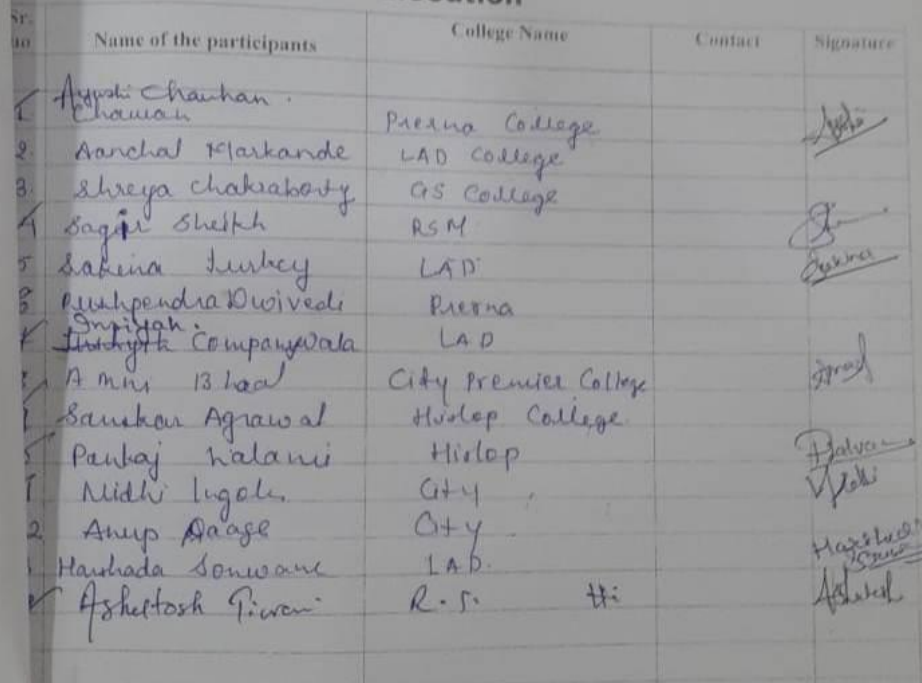 Sr. no Name of the participants College Name Contact Signature
Ayushi Chauhan.
Chauan Prerna College
2. Aanchal Markande LAD College
3. Shreya Chakraborty GS College
4 Sagir Sheikh RSM
5 Sakina Turkey LAD Sakina
Pushpendra Dwivedi Prerna
Inpiyah.
Companywala LAD
Amni Blaal City Premier College
Sanskar Agrawal Hislop College
Pankaj Halami Hislop
Nidhi Ingole City Nidhi
2 Anup Daage City
Harshada Sonwane LAD. Harshada
Ashettosh Tiwari R.S. Hi